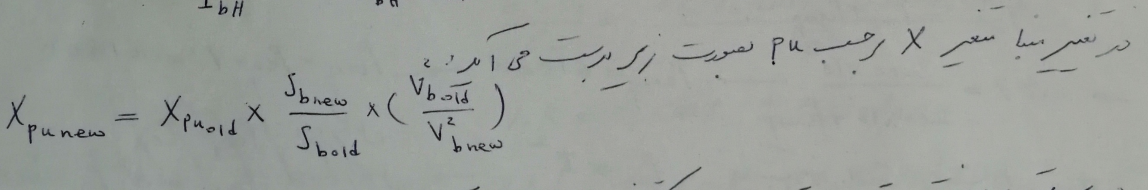 I bH bH
در تغییر مبنا متغیر X برحسب pu بصورت زیر بدست می آید:
X pu new = X pu old × S b new / S b old × ( V² b old / V² b new )